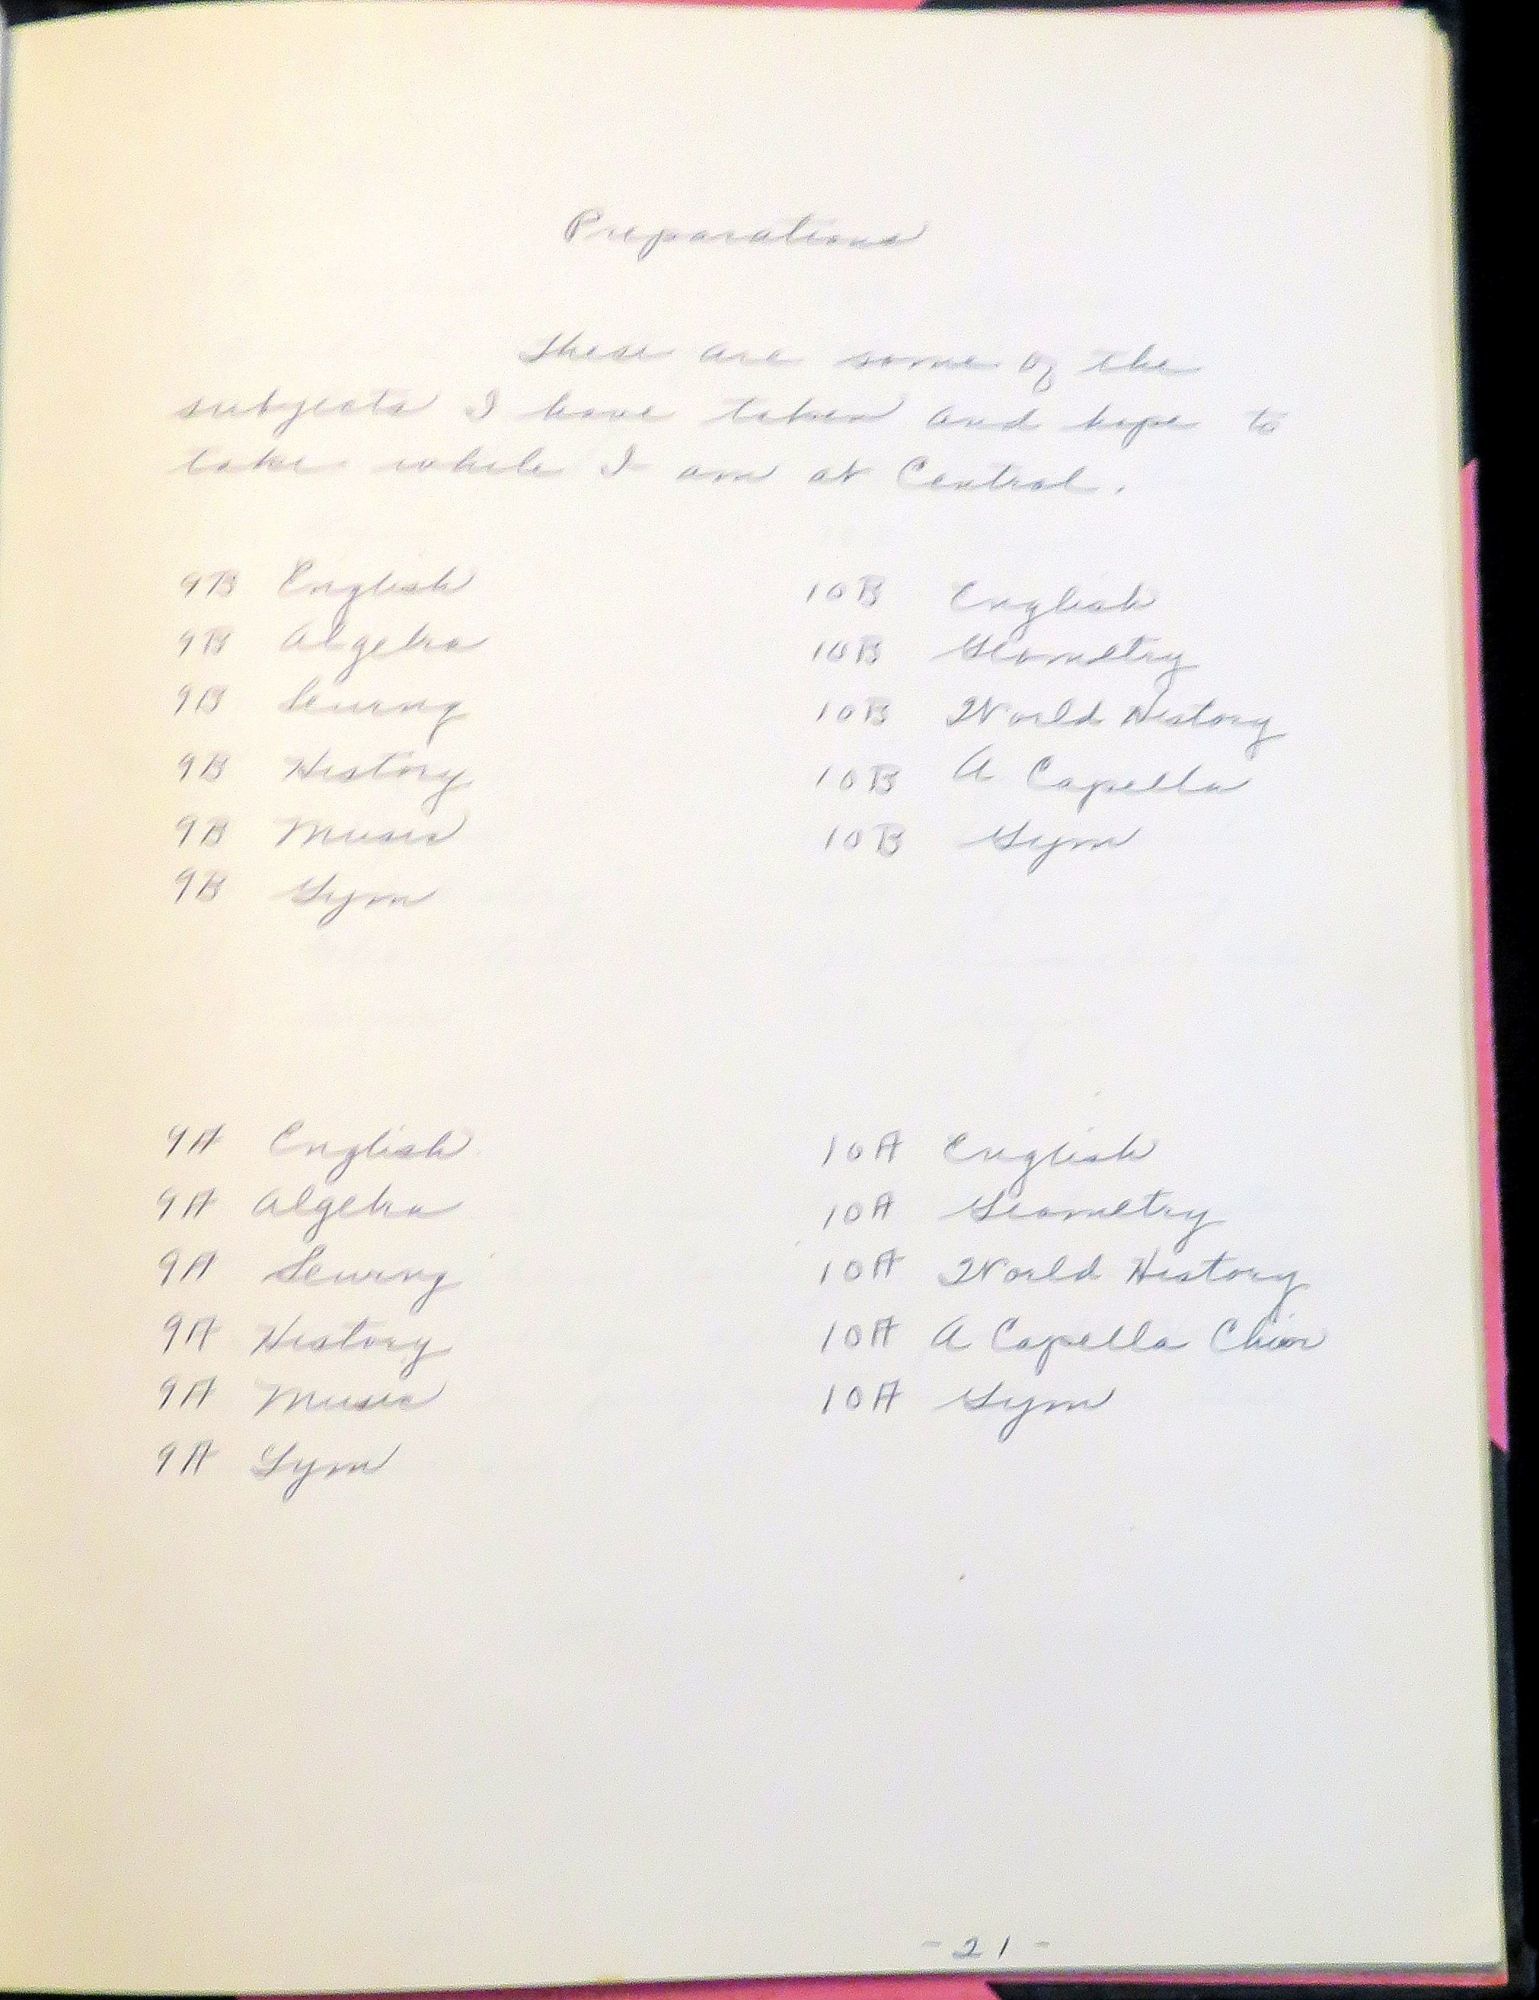 Preparations
These are some of the
subjects I have taken and hope to
take while I am at Central.
9B English
9B Algebra
9B Sewing
9B History
9B Music
9B Gym
10B English
10B Geometry
10B World History
10B A Capella
10B Gym
9A English
9A Algebra
9A Sewing
9A History
9A Music
9A Gym
10A English
10A Geometry
10A World History
10A A Capella Chior
10A Gym
- 21 -